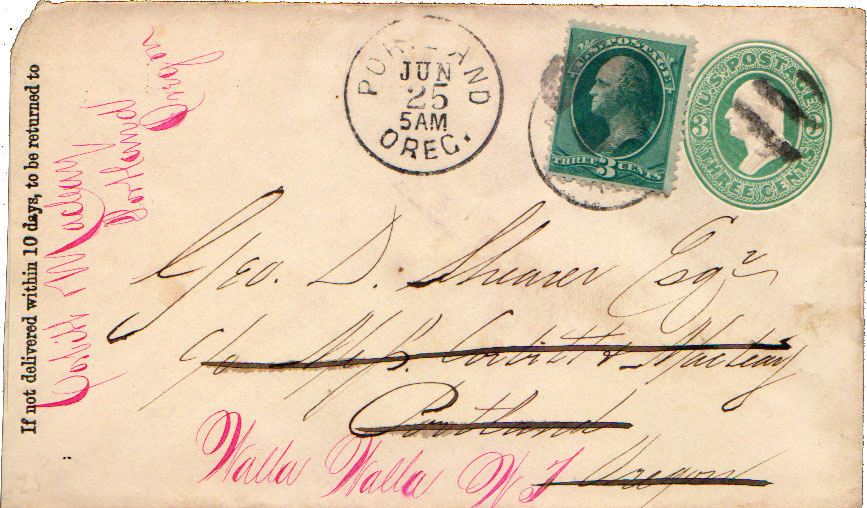 If not delivered within 10 days, to be returned to
Corbitt & Macleay
Portland
Oregon
PORTLAND
JUN
25
5AM
OREG.
U.S. POSTAGE.
THREE 3 CENTS
U.S. POSTAGE
3 3
THREE CENTS
Geo. D. Shearer Esqr
c/o Messrs. Corbitt & Macleay
Portland
Oregon
Walla Walla W T